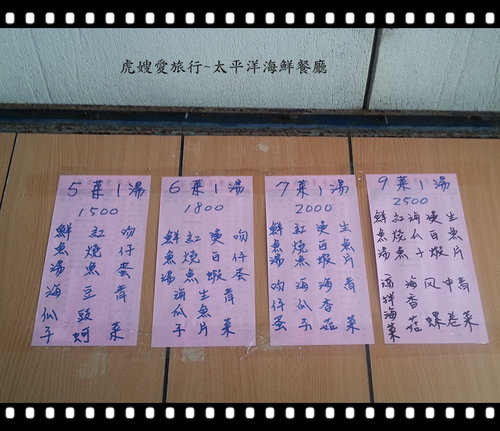 虎嫂愛旅行~太平洋海鮮餐廳
5菜1湯
1500
吻仔蛋
紅燒魚
鮮魚湯
青菜
豆豉蚵
海瓜子
6菜1湯
1800
吻仔蛋
燙百蝦
紅燒魚
鮮魚湯
青菜
生魚片
海瓜子
7菜1湯
2000
生魚片
燙百蝦
紅燒魚
鮮魚湯
青菜
海香菇
海瓜子
吻仔蛋
9菜1湯
2500
生魚片
燙百蝦
海瓜子
紅燒魚
鮮魚湯
青菜
中卷
风螺
海香菇
涼拌海菜